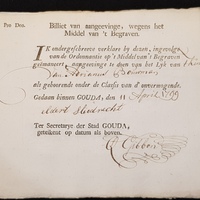 Pro Deo.
Billiet van aangeevinge, wegens het
Middel van 't Begraven.
IK ondergeschreve verklare by dezen, ingevolge
van de Ordonnantie op 't Middel van 't Begraven
geëmaneert, aangeevinge te doen van het Lyk van
Jan Adrianus Bouman
als gehoorende onder de Classis van d' onvermogende.
Gedaan binnen GOUDA, den 11 April 1799
Ter Secretarye der Stad GOUDA,
geteikent op datum als boven.